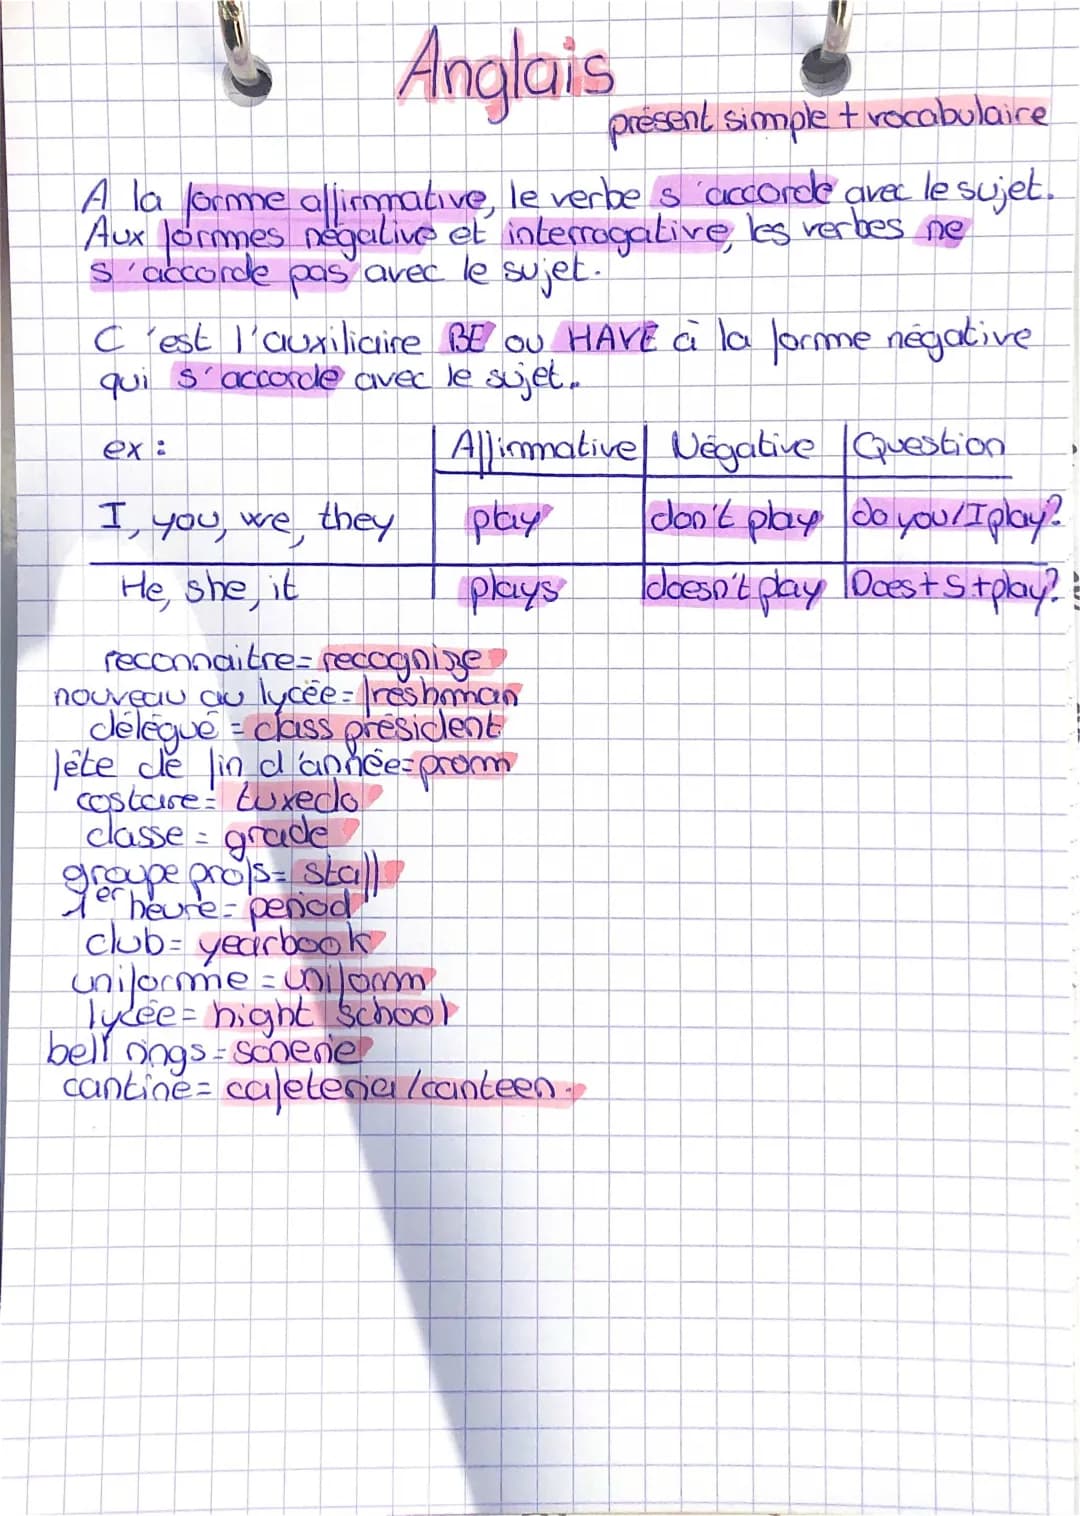 Anglais
présent simple + vocabulaire
A la forme affirmative, le verbe s'accorde avec le sujet.
Aux formes négative et interrogative, les verbes ne
s'accorde pas avec le sujet.
C'est l'auxiliaire BE ou HAVE à la forme négative
qui s'accorde avec le sujet.
ex : Affirmative Négative Question
I, you, we, they play don't play do you/I play?
He, she, it plays doesn't play Does + S + play?
reconnaitre = recognize
nouveau au lycée = freshman
délégué = class president
fête de fin d'année = prom
costare = tuxedo
classe = grade
groupe profs = staff
1er heure = period
club = yearbook
uniforme = uniform
lycée = hight school
bell rings = sonerie
cantine = cafeteria / canteen.